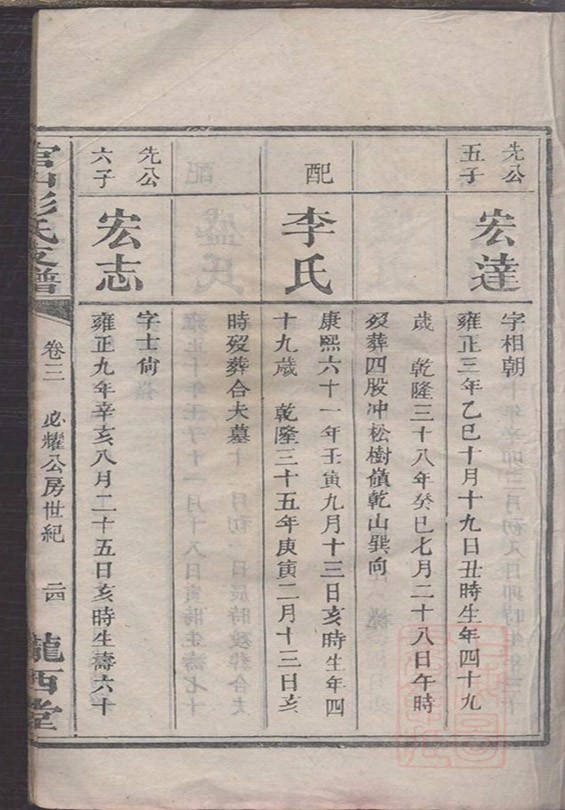 先公
五子
宏達
字相朝
雍正三年乙巳十月十九日丑時生年四十九
歲 乾隆三十八年癸巳七月二十八日午時
歿葬四股冲松樹嶺乾山巽向
配
李氏
康熙六十一年壬寅九月十三日亥時生年四
十九歲 乾隆三十五年庚寅二月十三日亥
時歿葬合夫墓
先公
六子
宏志
字士尙
雍正九年辛亥八月二十五日亥時生壽六十
彭氏支譜
卷三
必耀公房世紀
二四
隴西堂